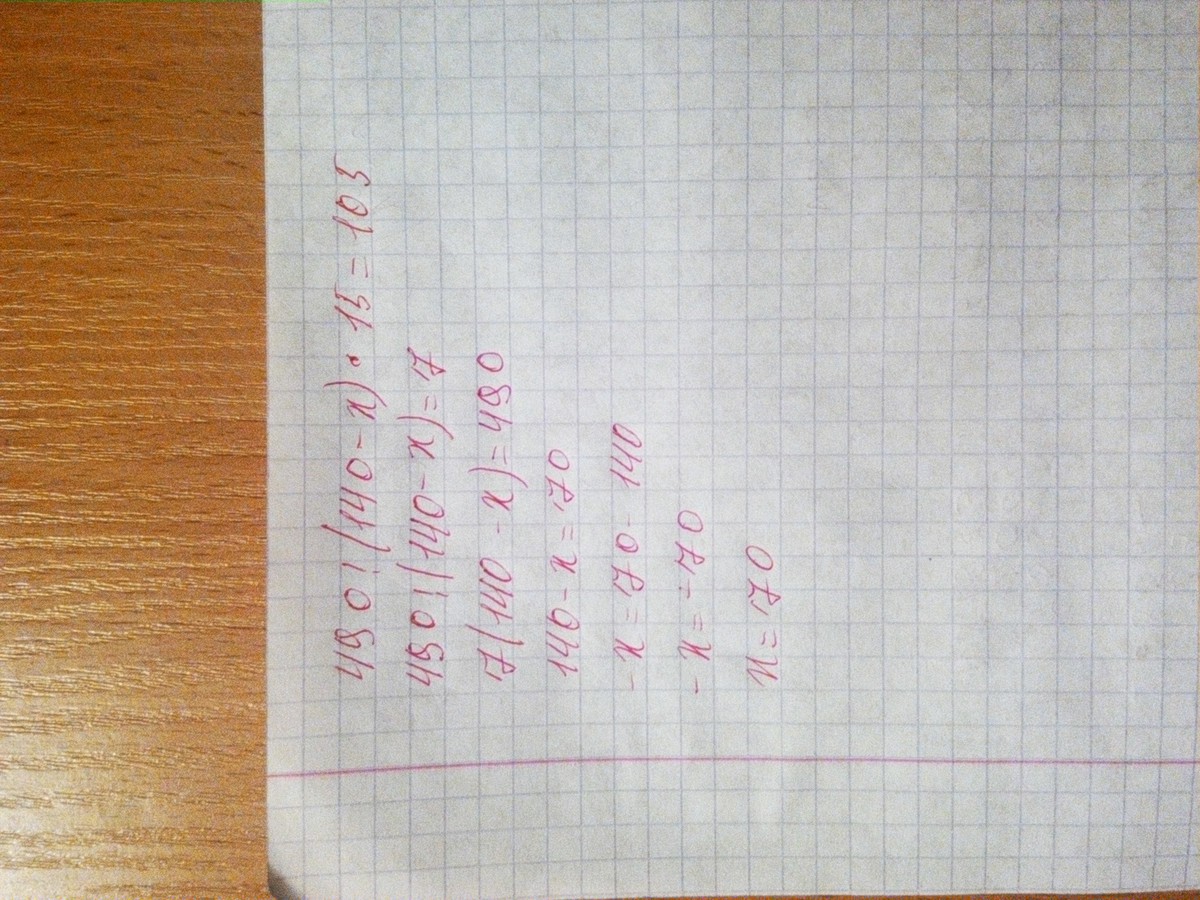 490:(140-x)·15=105
490:(140-x)=7
7(140-x)=490
140-x=70
-x=70-140
-x=-70
x=70